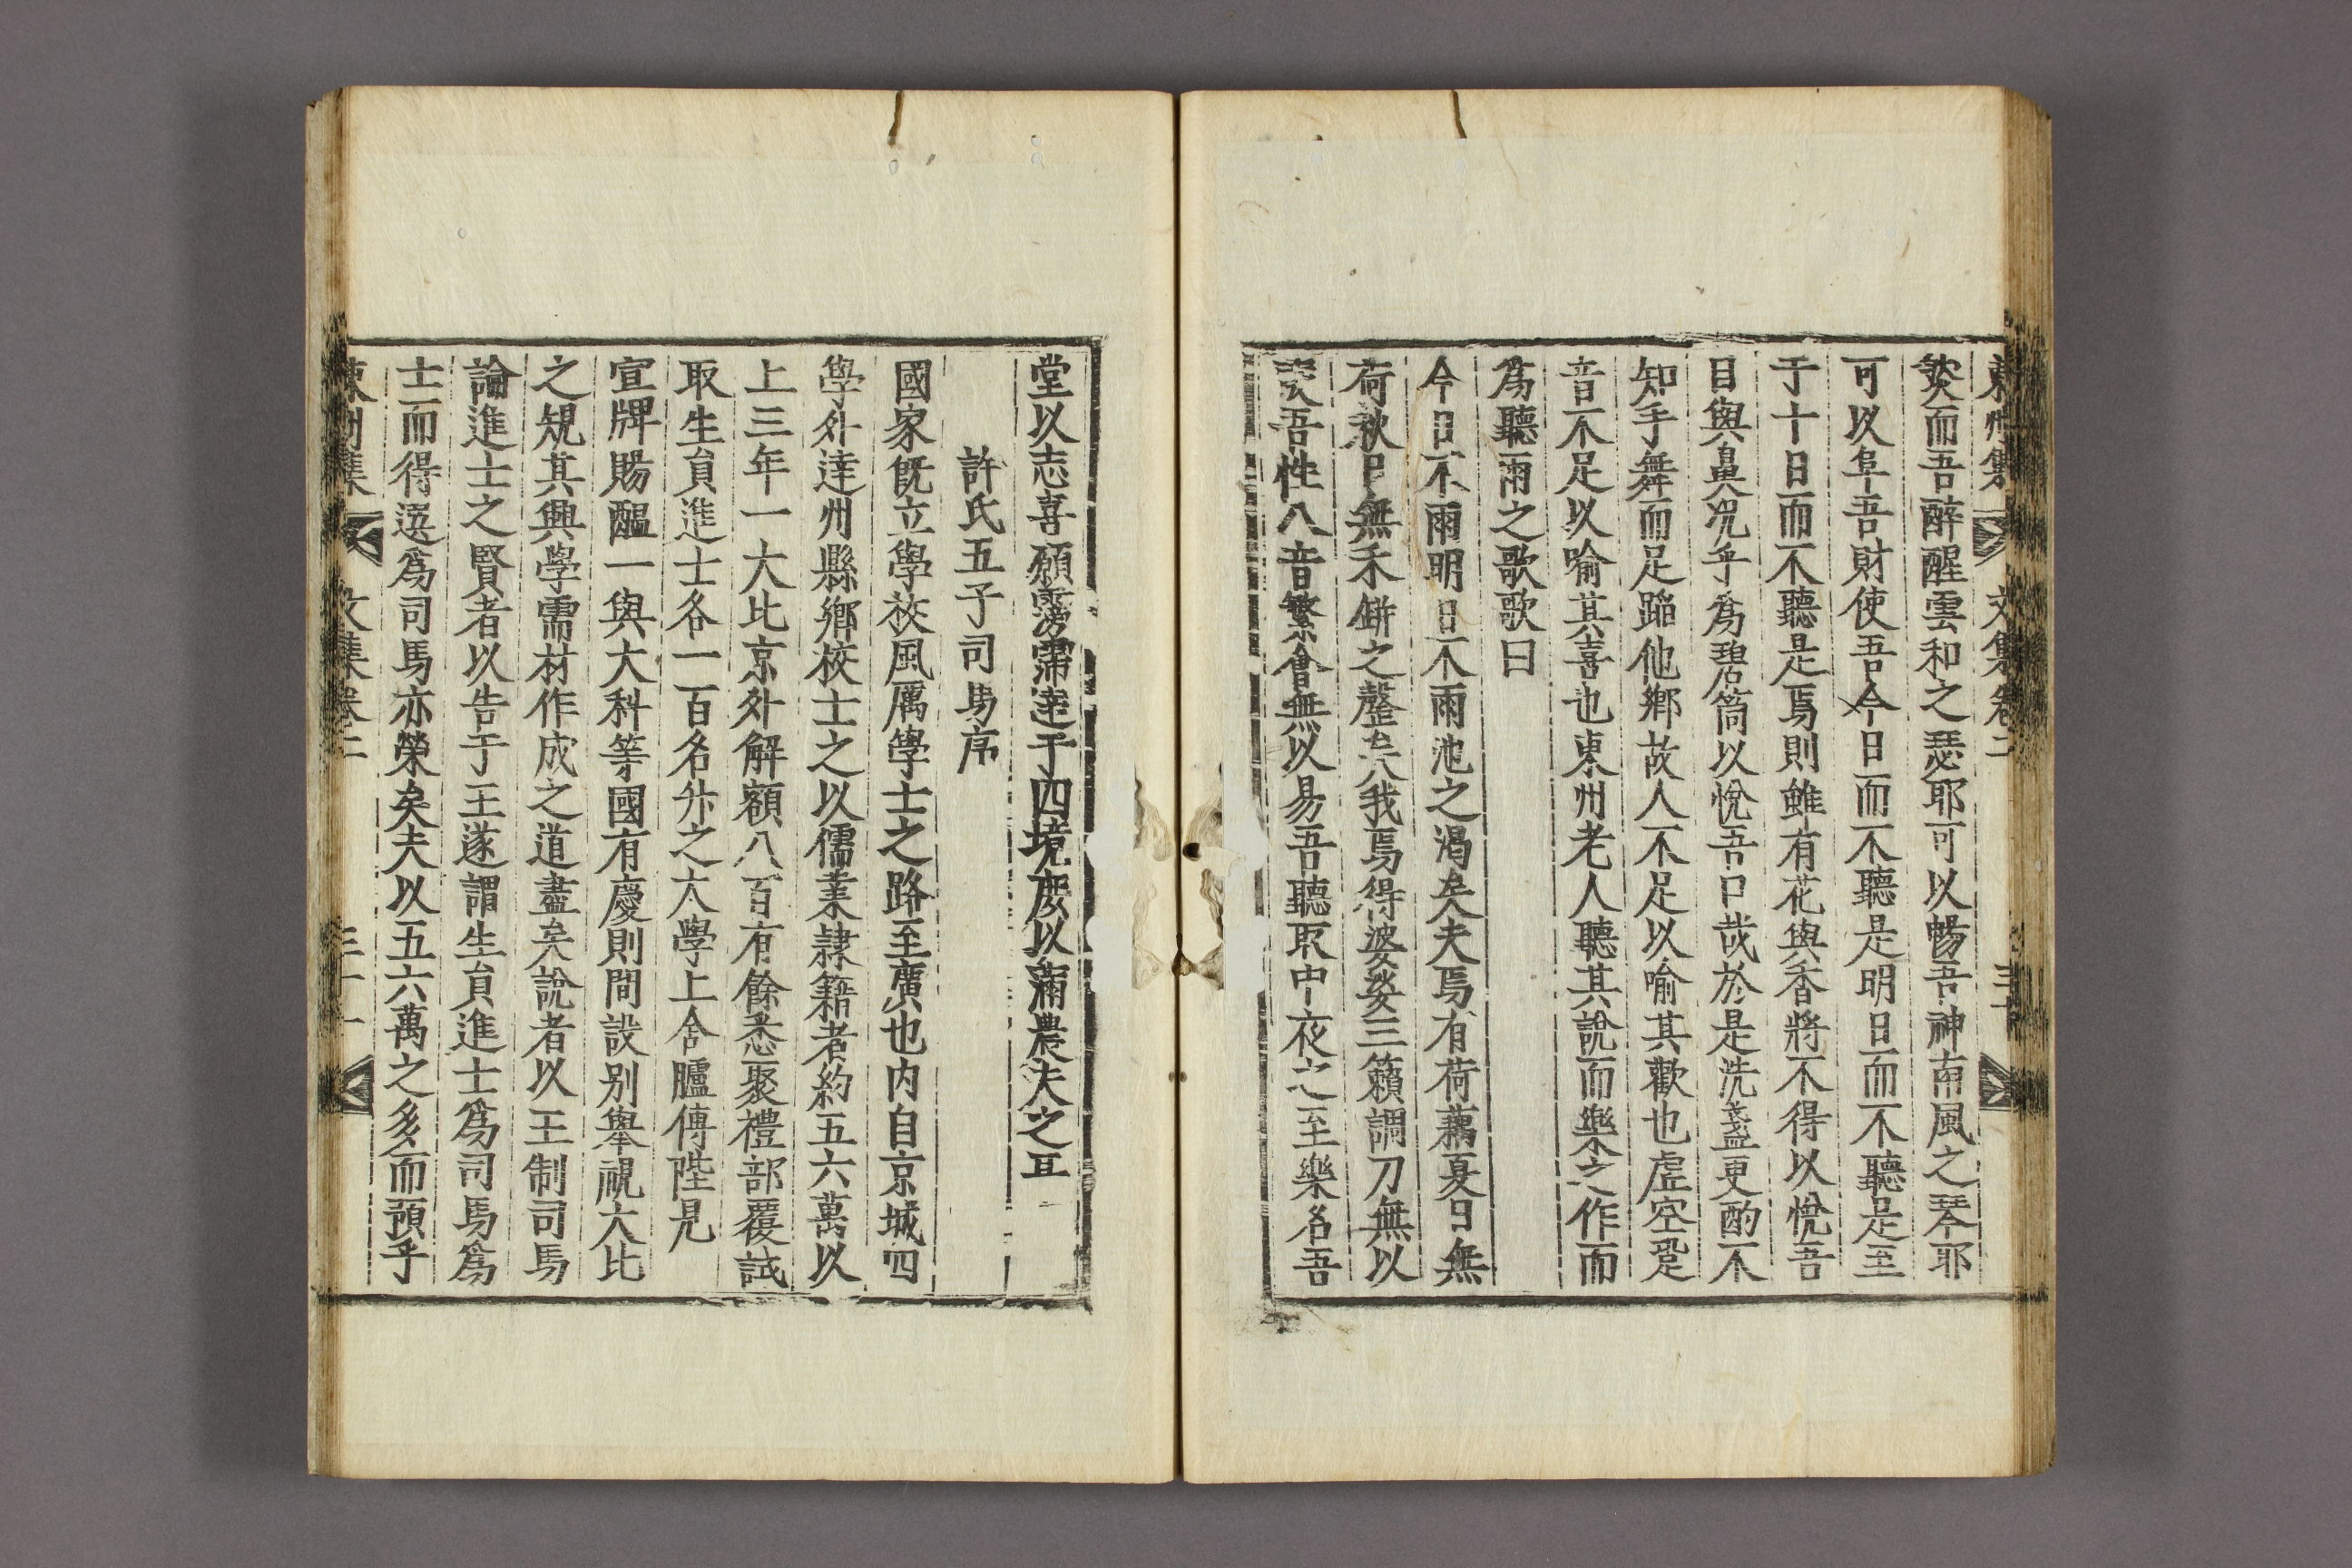 東州集 文集卷二 三十
焚而吾醉醒雲和之瑟耶可以暢吾神南風之琴耶
可以阜吾財使吾今日而不聽是明日而不聽是至
于十日而不聽是焉則雖有花與香將不得以悅吾
目與鼻况乎爲碧筒以悅吾口哉於是洗盞更酌不
知手舞而足蹈他鄕故人不足以喩其歡也虛空跫
音不足以喩其喜也東州老人聽其說而樂之作而
爲聽雨之歌歌曰
今日不雨明日不雨池之渴矣夫焉有荷藕夏日無
荷秋日無禾缾之罄矣我焉得婆娑三籟調刀無以
吾性八音繁會無以易吾聽取中夜之至樂名吾
堂以志喜願霶霈達于四境慶以滿農夫之耳
許氏五子司馬序
國家旣立學校風厲學士之路至廣也内自京城四
學外達州縣鄕校士之以儒業隷籍者約五六萬以
上三年一大比京外解額八百有餘悉聚禮部覆試
取生員進士各一百名升之大學上舍臚傳陛見
宣牌賜醞一與大科等國有慶則間設别擧視大比
之規其興學需材作成之道盡矣說者以王制司馬
論進士之賢者以告于王遂謂生員進士爲司馬爲
士而得選爲司馬亦榮矣夫以五六萬之多而預乎
東州集 文集卷二 三十一